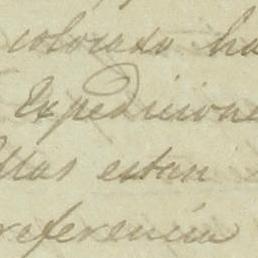 colorado ha
Expedicione
llas estan
referencia